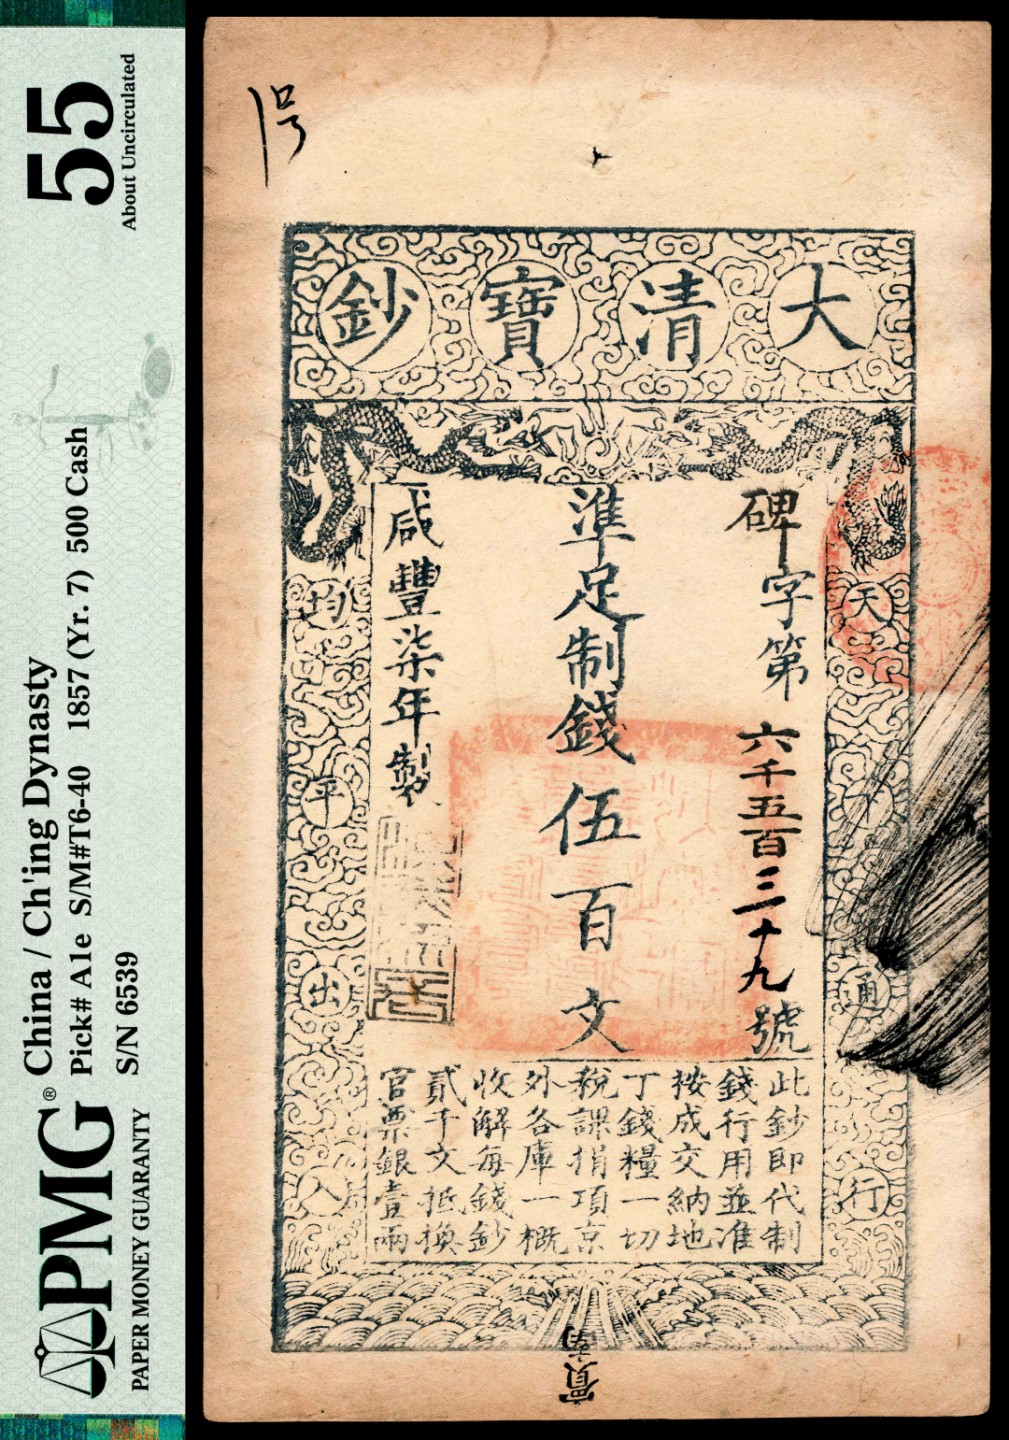 PMG®
PAPER MONEY GUARANTY
China / Ch'ing Dynasty
Pick# A1e S/M#T6-40 1857 (Yr. 7) 500 Cash
S/N 6539
55
About Uncirculated
号
大清寶鈔
天下通行
均平出入
碑字第六千五百三十九號
準足制錢伍百文
咸豐柒年製
此鈔即代制
錢行用並准
按成交納地
丁錢糧一切
稅課捐項京
外各庫一概
收解每錢鈔
貳千文抵換
官票銀壹兩